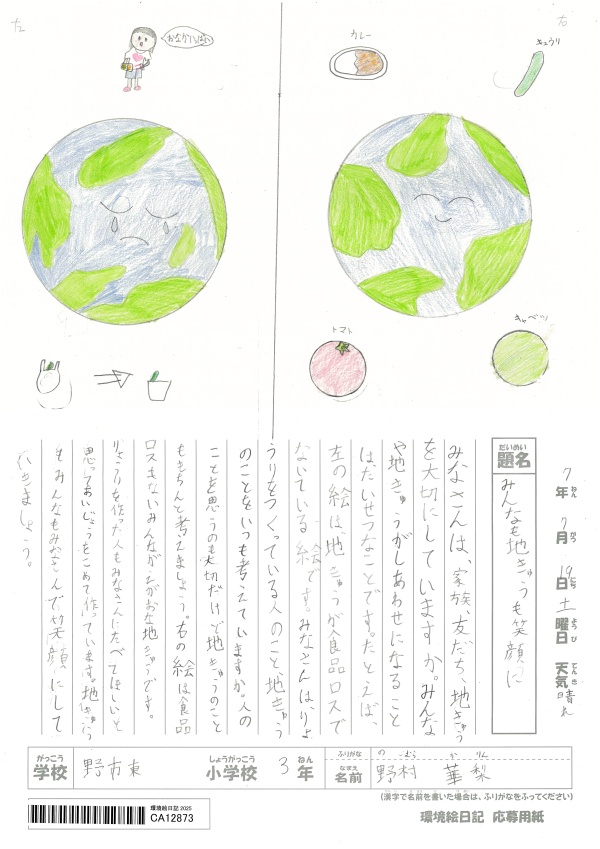 左
右
おなかいっぱい
カレー
キュウリ
トマト
キャベツ
7年 7月 19日 土曜日 天気 晴れ
ねん がつ にち ようび てんき
だいめい
題名
みんなも地きゅうも笑顔に
みなさんは、家族、友だち、地きゅう
を大切にしていますか。みんな
や地きゅうがしあわせになること
はたいせつなことです。たとえば、
左の絵は、地きゅうが食品ロスで
ないている絵です。みなさんは、りょ
うりをつくっている人のこと、地きゅう
のことをいつも考えていますか。人の
ことを思うのも大切だけど地きゅうのこと
もきちんと考えましょう。右の絵は食品
ロスもないみんながえがおな地きゅうです。
りょうりを作った人もみなさんにたべてほしいと
思ってあいじょうをこめて作っています。地きゅう
もみんなもみなさんで笑顔にして
いきましょう。
がっこう
学校
野市東
しょうがっこう
小学校
3
ねん
年
ふりがな
なまえ
名前
のむら かりん
野村 華梨
(漢字で名前を書いた場合は、ふりがなをふってください)
環境絵日記 2025
CA12873
環境絵日記 応募用紙